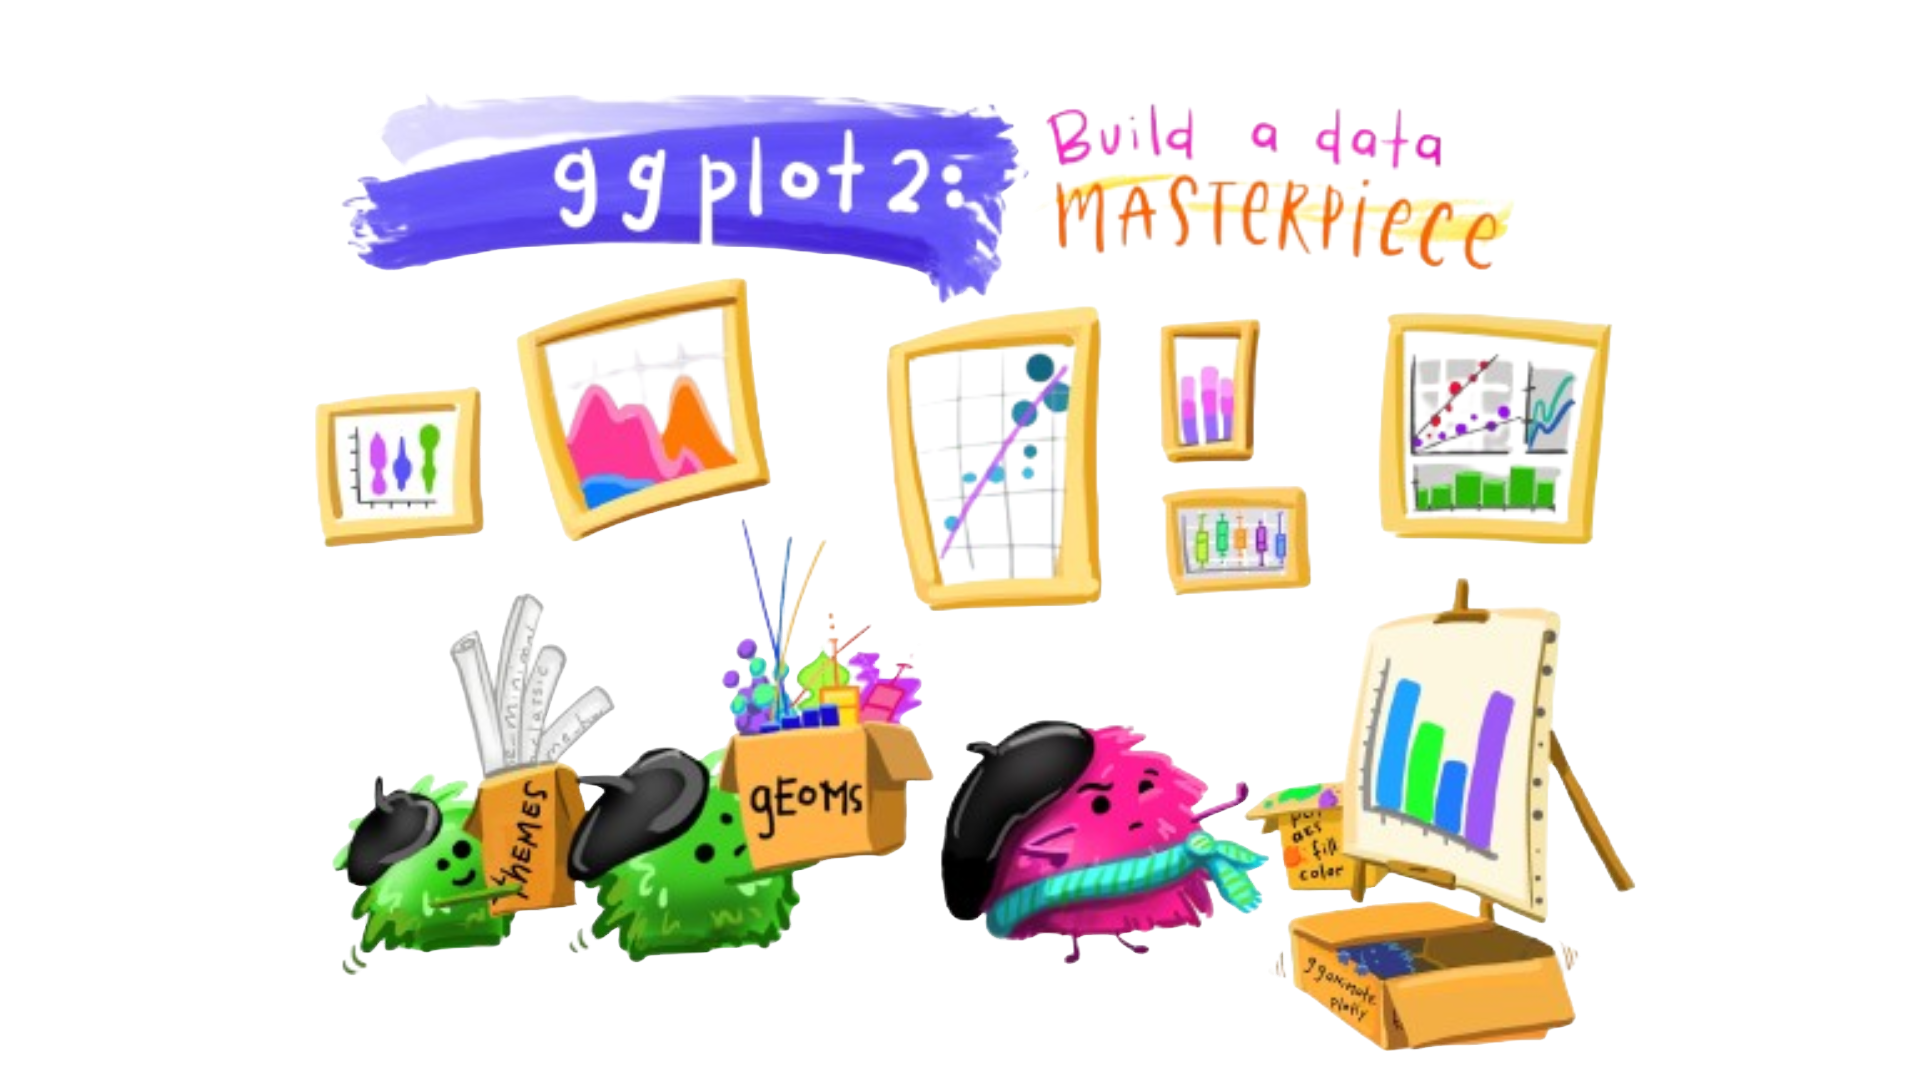 ggplot2:
Build a data
MASTERPIECE
minimal
classic
THEMES
gEoMs
aes
fill
color
gganimate
plotly